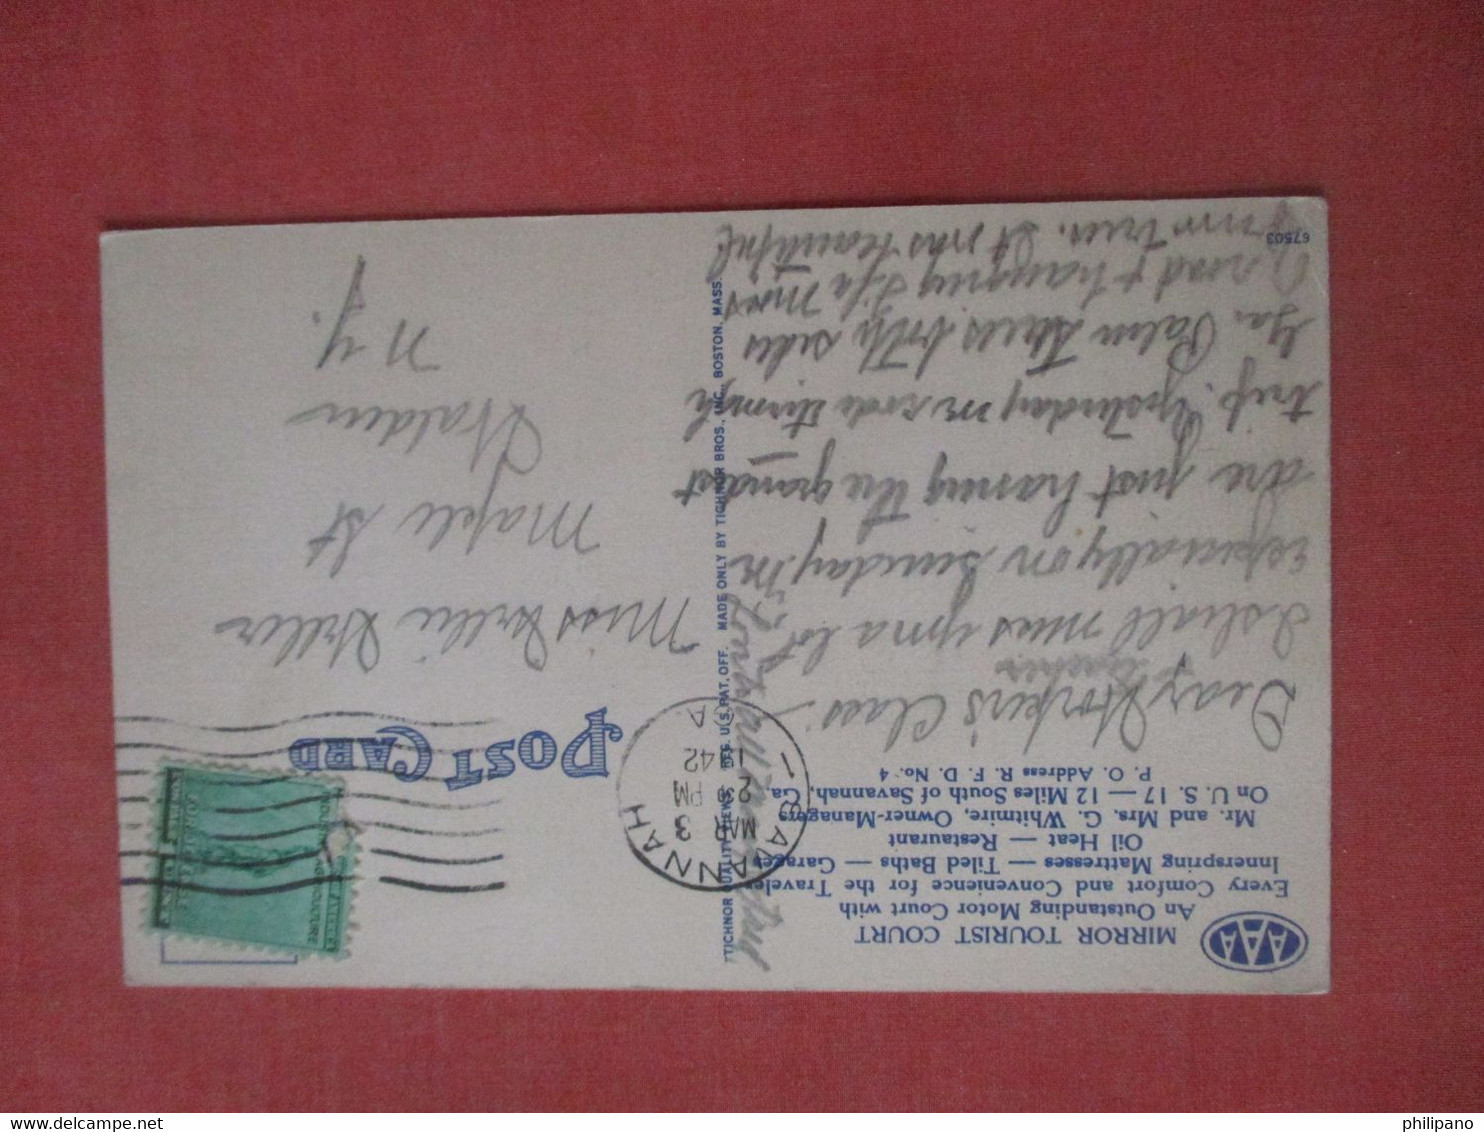 MIRROR TOURIST COURT
An Outstanding Motor Court with
Every Comfort and Convenience for the Traveler
Innerspring Mattresses — Tiled Baths — Garages
Oil Heat — Restaurant
Mr. and Mrs. G. Whitmire, Owner-Managers
On U. S. 17 — 12 Miles South of Savannah, Ga.
P. O. Address R. F. D. No. 4
AAA
Dear Workers Class,
Teacher
I shall miss you a lot
especially on Sunday. We
are just having the grandest
trip. Yesterday we rode through
Ga. Palm trees both sides
road & hanging moss
trees. It was beautiful
67503
TICHNOR QUALITY VIEWS, REG. U. S. PAT. OFF. MADE ONLY BY TICHNOR BROS., INC., BOSTON, MASS.
SAVANNAH
GA.
MAR 3
230 PM
1942
POST CARD
Miss
Maple St
Walden
N.Y.
philipano